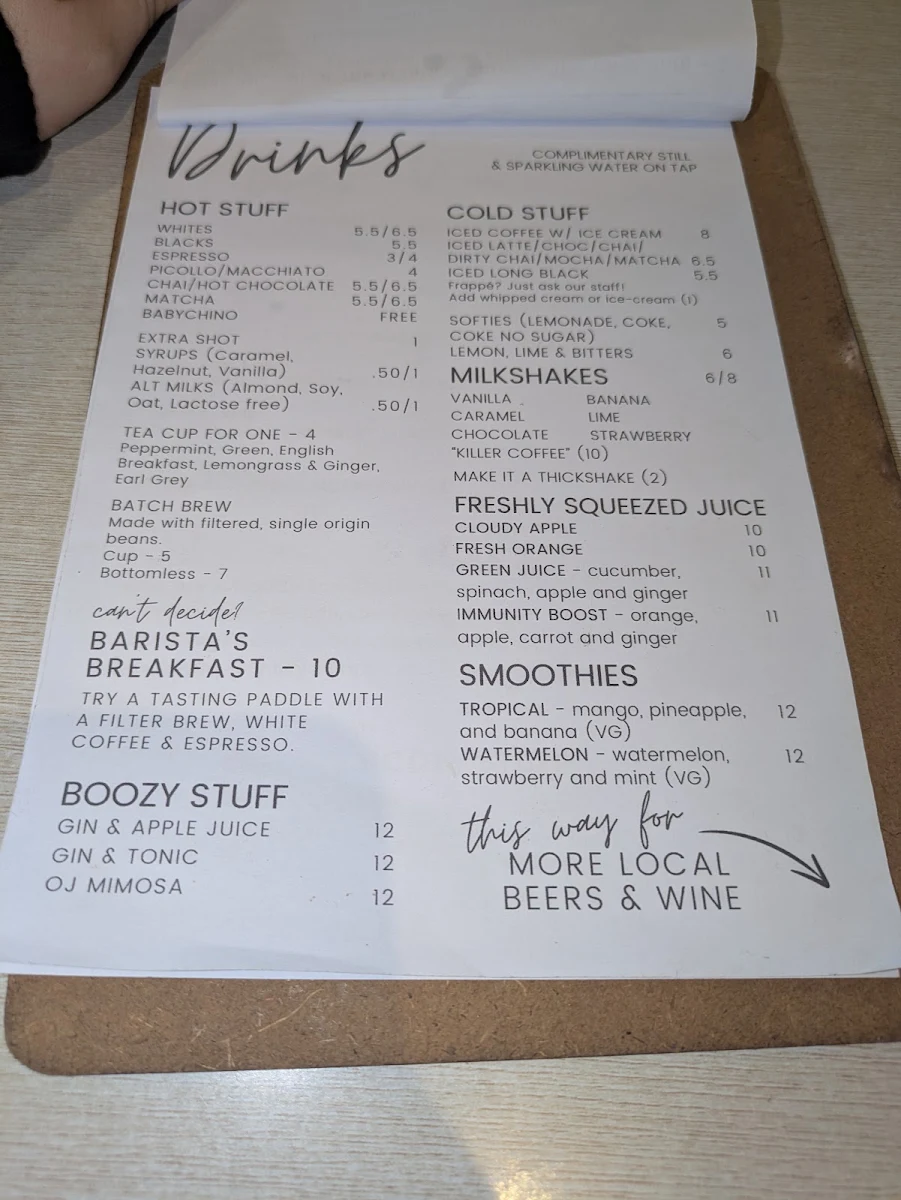 Drinks
COMPLIMENTARY STILL
& SPARKLING WATER ON TAP
HOT STUFF
WHITES 5.5/6.5
BLACKS 5.5
ESPRESSO 3/4
PICOLLO/MACCHIATO 4
CHAI/HOT CHOCOLATE 5.5/6.5
MATCHA 5.5/6.5
BABYCHINO FREE
EXTRA SHOT 1
SYRUPS (Caramel,
Hazelnut, Vanilla) .50/1
ALT MILKS (Almond, Soy,
Oat, Lactose free) .50/1
TEA CUP FOR ONE - 4
Peppermint, Green, English
Breakfast, Lemongrass & Ginger,
Earl Grey
BATCH BREW
Made with filtered, single origin
beans.
Cup - 5
Bottomless - 7
can't decide?
BARISTA'S
BREAKFAST - 10
TRY A TASTING PADDLE WITH
A FILTER BREW, WHITE
COFFEE & ESPRESSO.
BOOZY STUFF
GIN & APPLE JUICE 12
GIN & TONIC 12
OJ MIMOSA 12
COLD STUFF
ICED COFFEE W/ ICE CREAM 8
ICED LATTE/CHOC/CHAI/
DIRTY CHAI/MOCHA/MATCHA 6.5
ICED LONG BLACK 5.5
Frappè? Just ask our staff!
Add whipped cream or ice-cream (1)
SOFTIES (LEMONADE, COKE, 5
COKE NO SUGAR)
LEMON, LIME & BITTERS 6
MILKSHAKES 6/8
VANILLA BANANA
CARAMEL LIME
CHOCOLATE STRAWBERRY
"KILLER COFFEE" (10)
MAKE IT A THICKSHAKE (2)
FRESHLY SQUEEZED JUICE
CLOUDY APPLE 10
FRESH ORANGE 10
GREEN JUICE - cucumber, 11
spinach, apple and ginger
IMMUNITY BOOST - orange, 11
apple, carrot and ginger
SMOOTHIES
TROPICAL - mango, pineapple, 12
and banana (VG)
WATERMELON - watermelon, 12
strawberry and mint (VG)
this way for
MORE LOCAL
BEERS & WINE